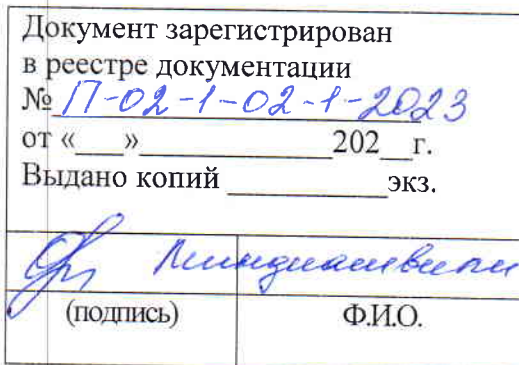 Документ зарегистрирован
в реестре документации
№ П-02-1-02-1-2023
от «___»______________202__г.
Выдано копий ___________экз.
(подпись) Ф.И.О.